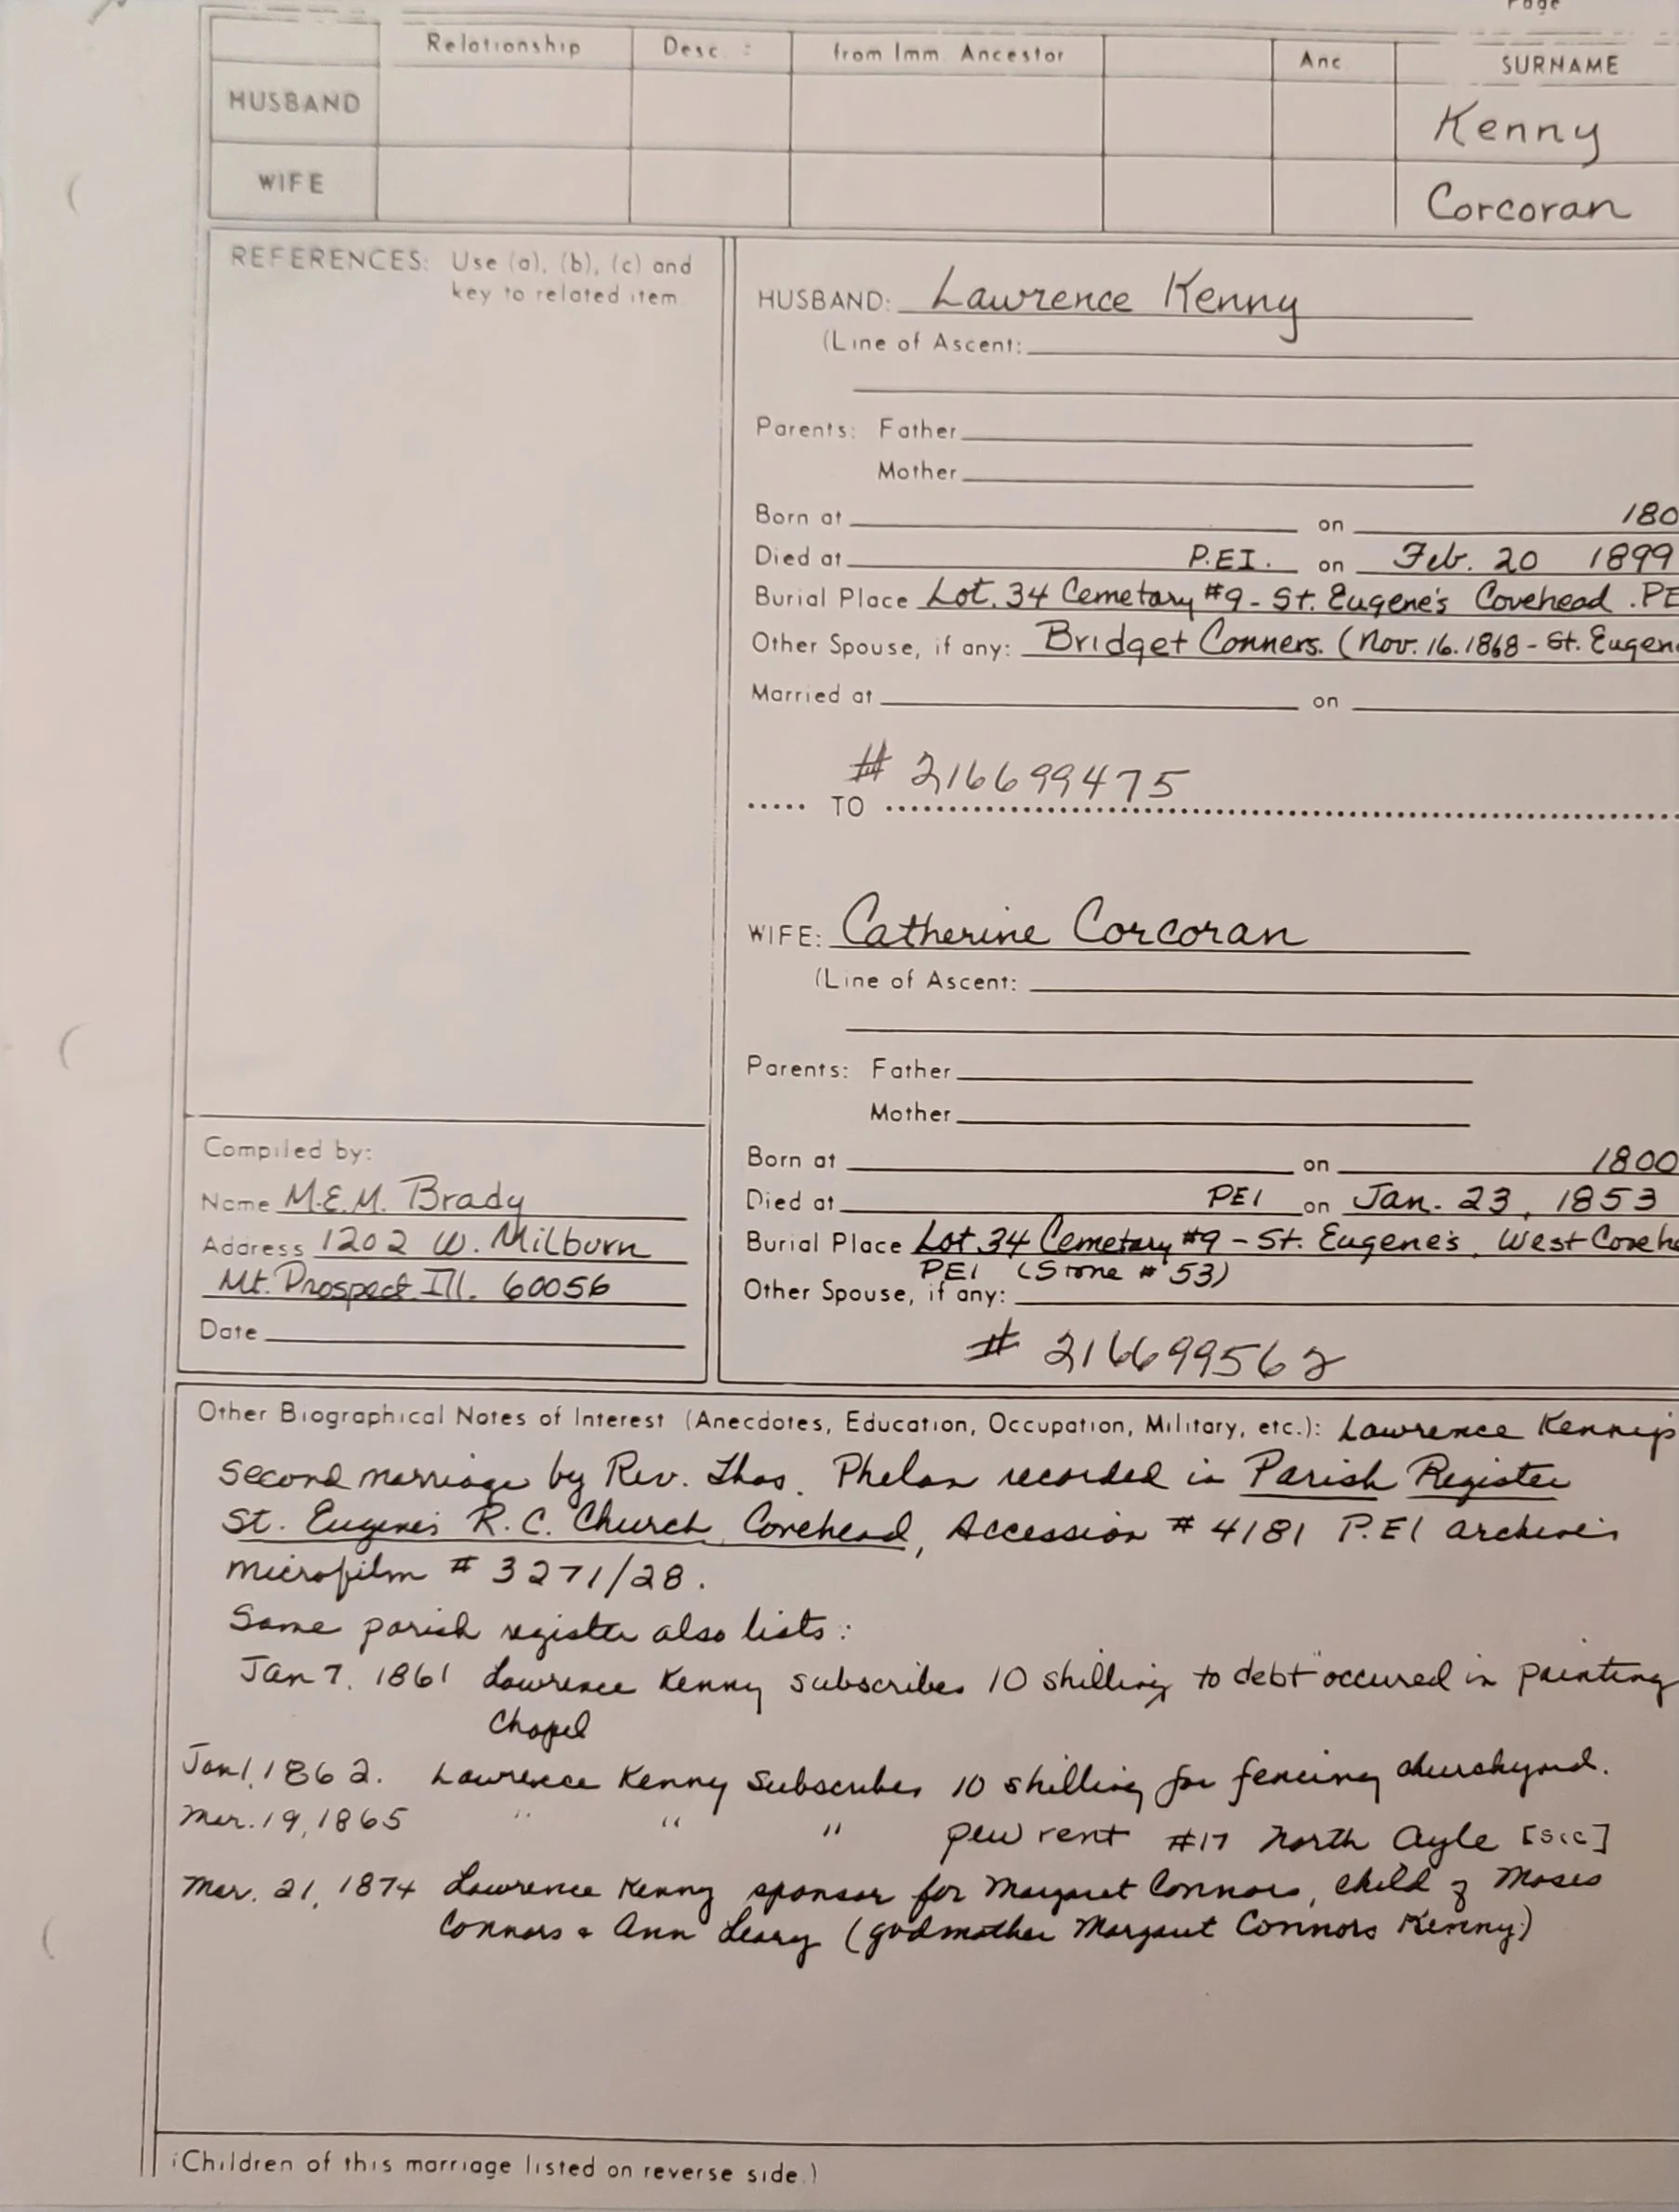 Page
Relationship Desc. : from Imm. Ancestor Anc. SURNAME
HUSBAND Kenny
WIFE Corcoran
REFERENCES: Use (a), (b), (c) and
key to related item.
HUSBAND: Lawrence Kenny
(Line of Ascent:
Parents: Father
Mother
Born at on 180
Died at P.E.I. on Feb. 20 1899
Burial Place Lot. 34 Cemetary #9 - St. Eugene's Covehead . PE
Other Spouse, if any: Bridget Conners. (Nov. 16. 1868 - St. Eugen
Married at on
# 216699475
..... TO .....
WIFE: Catherine Corcoran
(Line of Ascent:
Parents: Father
Mother
Born at on 1800
Died at PEI on Jan. 23, 1853
Burial Place Lot. 34 Cemetary #9 - St. Eugene's, West Coveh
PEI (Stone # 53)
Other Spouse, if any:
# 216699562
Compiled by:
Name M.E.M. Brady
Address 1202 W. Milburn
Mt. Prospect Ill. 60056
Date
Other Biographical Notes of Interest (Anecdotes, Education, Occupation, Military, etc.): Lawrence Kenny's
second marriage by Rev. Thos. Phelan recorded in Parish Register
St. Eugene's R.C. Church, Covehead, Accession # 4181 P.EI archives
microfilm # 3271/28.
Same parish register also lists:
Jan 7, 1861 Lawrence Kenny subscribes 10 shilling to debt "occured in painting
Chapel
Jan 1, 1862. Lawrence Kenny Subscribes 10 shilling for fencing churchyard.
Mar. 19, 1865 " " " pew rent #17 North Ayle [sic]
Mar. 21, 1874 Lawrence Kenny sponsor for Margaret Connors, child of Moses
Connors & Ann Leary (godmother Margaret Connors Kenny)
(Children of this marriage listed on reverse side.)